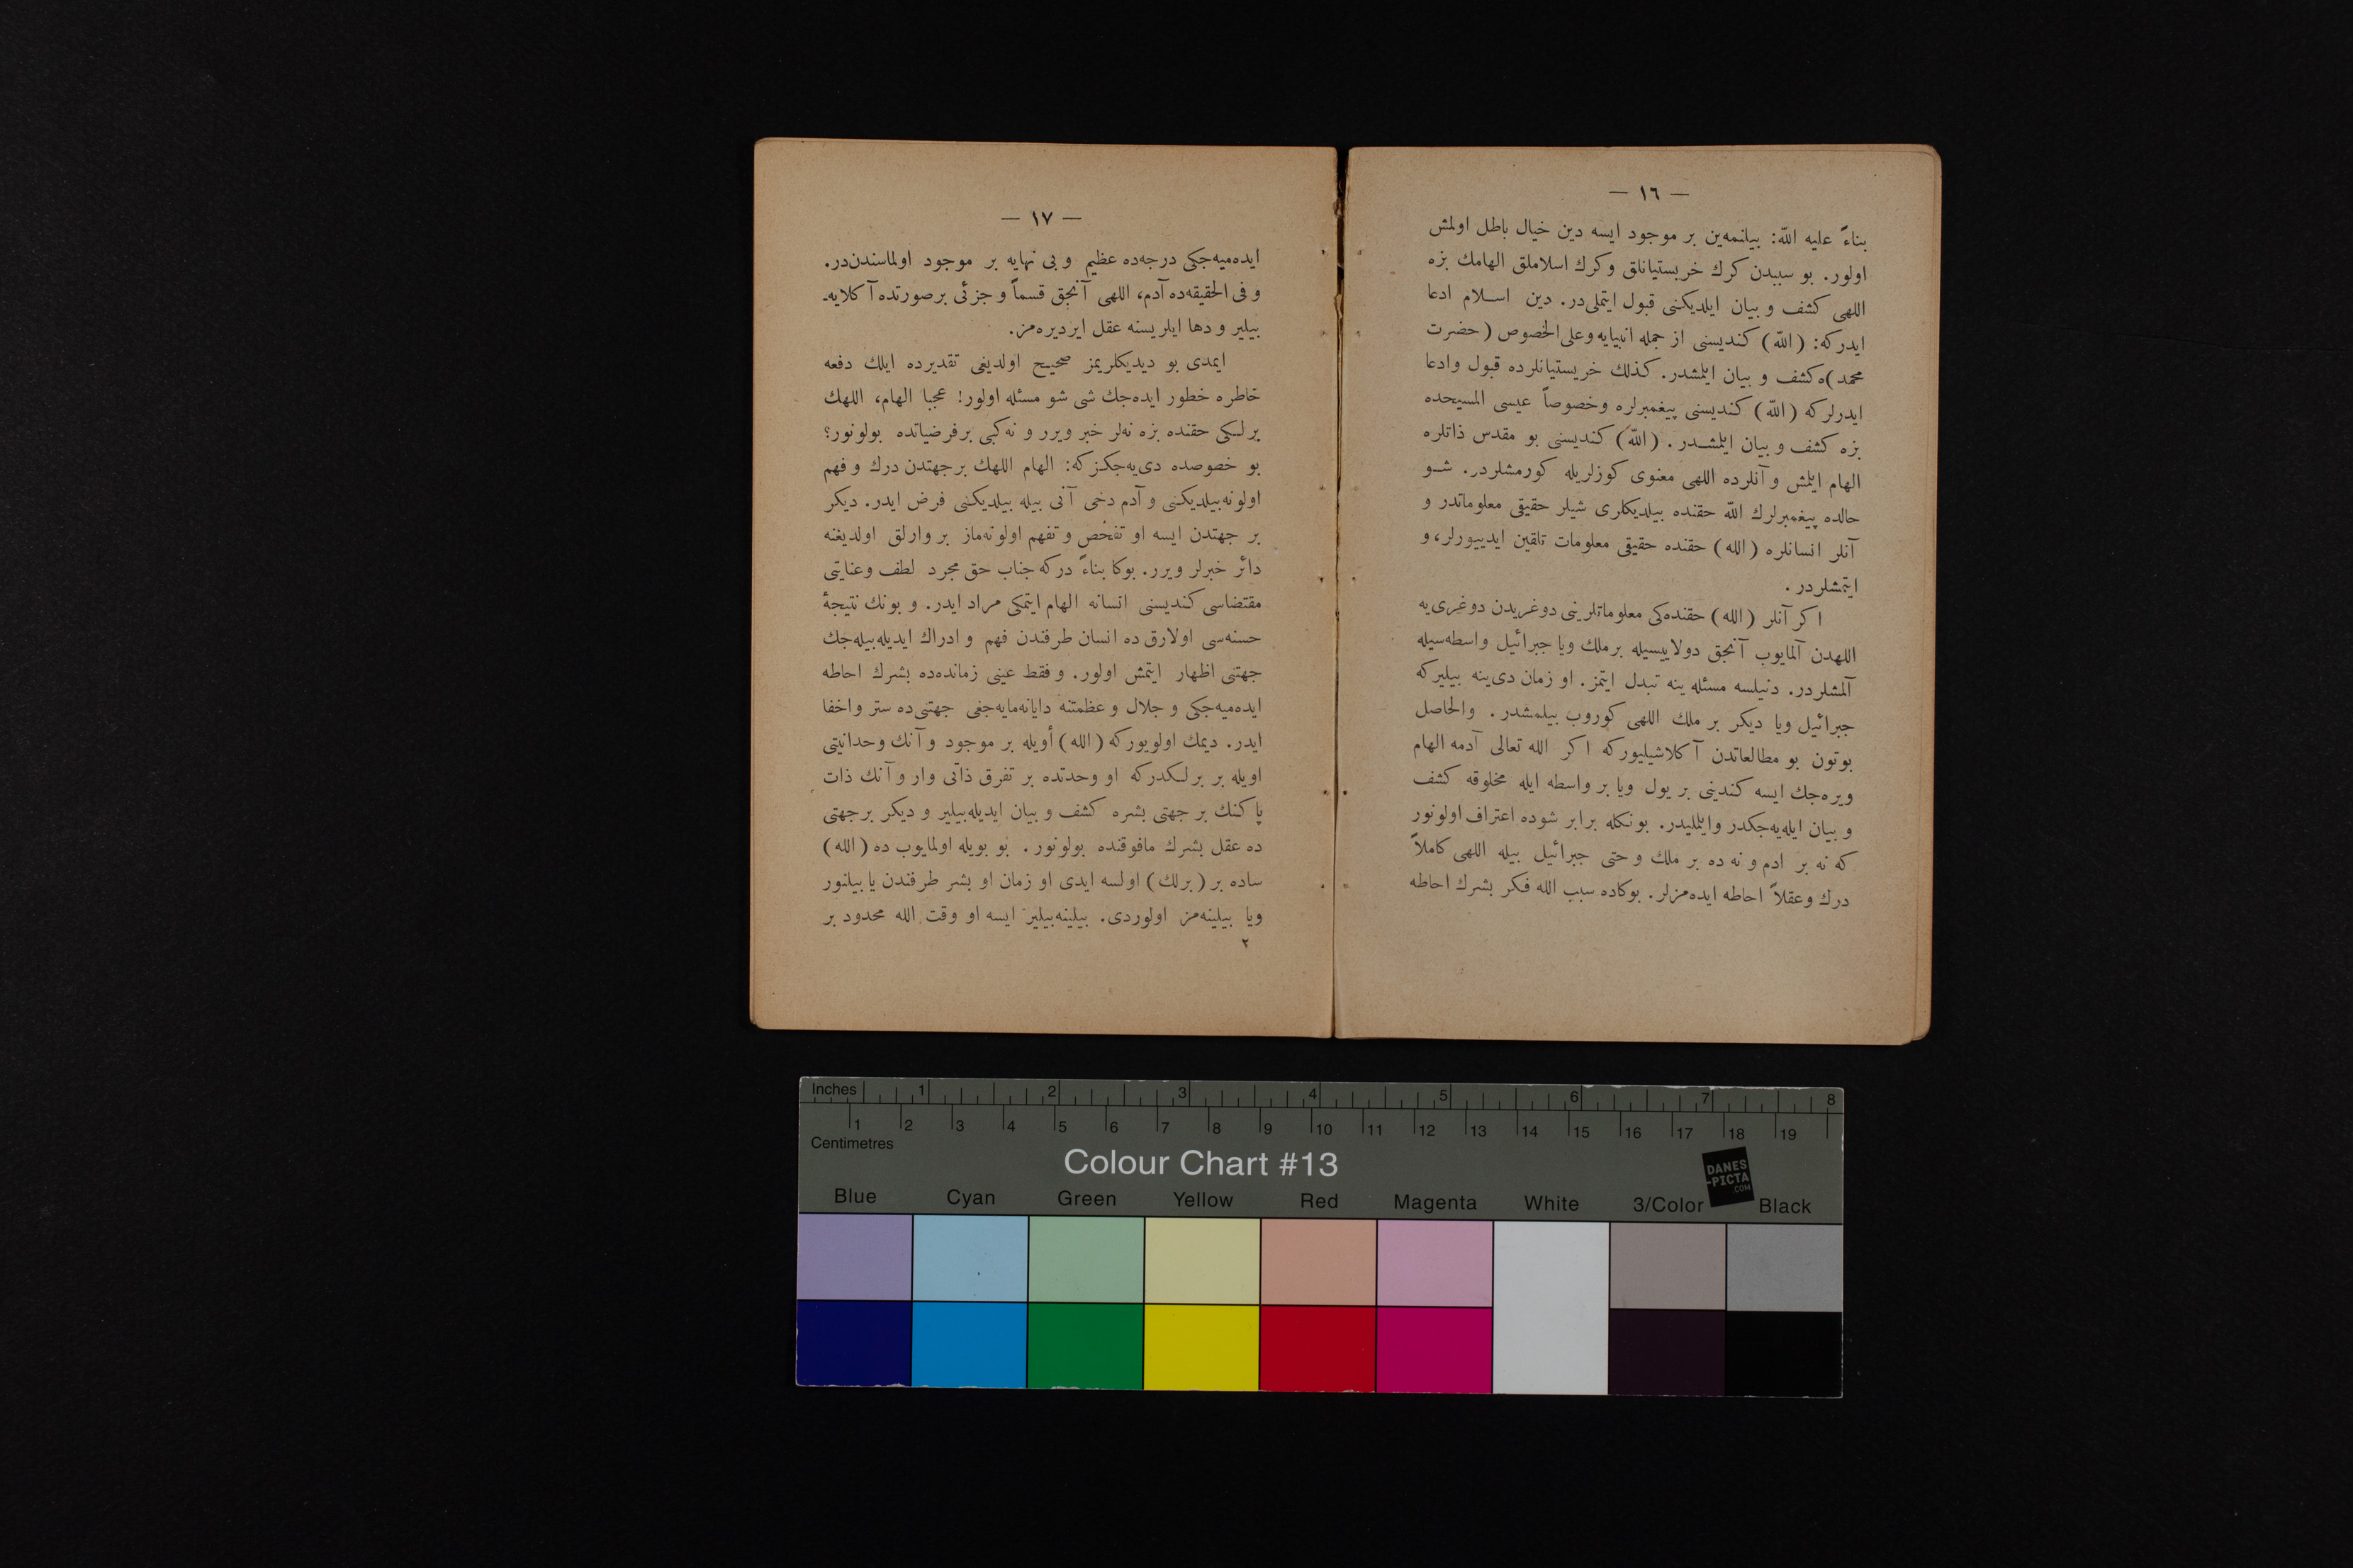 — ١٦ —
بناءً عليه اللّه: بيلنمه‌ين بر موجود ايسه دين خيال باطل اولمش
اولور. بو سببدن كرك خريستيانلق وكرك اسلاملق الهامك بزه
اللهى كشف و بيان ايلديكنى قبول ايتملى‌در. دين اسـلام ادعا
ايدركه: (اللّه) كنديسنى از جمله انبيايه وعلى‌الخصوص (حضرت
محمد)ه كشف و بيان ايلمشدر. كذلك خريستيانلرده قبول وادعا
ايدرلركه (اللّه) كنديسنى پيغمبرلره وخصوصاً عيسى المسيحده
بزه كشف و بيان ايلمشـدر. (اللّه) كنديسنى بو مقدس ذاتلره
الهام ايلمش و آنلرده اللهى معنوى كوزلريله كورمشلردر. شـو
حالده پيغمبرلرك اللّه حقنده بيلديكلرى شيلر حقيقى معلوماتدر و
آنلر انسانلره (الله) حقنده حقيقى معلومات تلقين ايدييورلر، و
ايتمشلردر.
اكر آنلر (الله) حقنده‌كى معلوماتلرينى دوغريدن دوغرى‌يه
اللهدن آلمايوب آنجق دولاييسيله برملك ويا جبرائيل واسطه‌سيله
آلمشلردر. دنيلسه مسئله ينه تبدل ايتمز. او زمان دى‌ينه بيليركه
جبرائيل ويا ديكر بر ملك اللهى كوروب بيلمشدر. والحاصل
بوتون بو مطالعاتدن آكلاشيليوركه اكر الله تعالى آدمه الهام
ويره‌جك ايسه كندينى بر يول ويا بر واسطه ايله مخلوقه كشف
و بيان ايله‌يه‌جكدر وايلمليدر. بونكله برابر شوده اعتراف اولونور
كه نه بر ادم و نه ده بر ملك و حتى جبرائيل بيله اللهى كاملاً
درك وعقلاً احاطه ايده‌مزلر. بوكاده سبب الله فكر بشرك احاطه
— ١٧ —
ايده‌ميه‌جكى درجه‌ده عظيم و بى نهايه بر موجود اولماسندن‌در.
و فى الحقيقه‌ده آدم، اللهى آنجق قسماً و جزئى برصورتده آكلايه‌ـ
بيلير و دها ايلريسنه عقل ايرديره‌مز.
ايمدى بو ديديكلريمز صحيح اولديغى تقديرده ايلك دفعه
خاطره خطور ايده‌جك شى شو مسئله اولور! عجبا الهام، اللهك
برلكى حقنده بزه نه‌لر خبر ويرر و نه كبى برفرضياتده بولونور؟
بو خصوصده دى‌يه‌جكزكه: الهام اللهك برجهتدن درك و فهم
اولونه‌بيلديكنى و آدم دخى آنى بيله بيلديكنى فرض ايدر. ديكر
بر جهتدن ايسه او تفحص و تفهم اولونه‌ماز بر وارلق اولديغنه
دائر خبرلر ويرر. بوكا بناءً دركه جناب حق مجرد لطف وعنايتى
مقتضاسى كنديسنى انسانه الهام ايتمكى مراد ايدر. و بونك نتيجۀ
حسنه‌سى اولارق ده انسان طرفندن فهم و ادراك ايديله‌بيله‌جك
جهتنى اظهار ايتمش اولور. و فقط عينى زمانده‌ده بشرك احاطه
ايده‌ميه‌جكى و جلال و عظمتنه دايانه‌مايه‌جغى جهتنى‌ده ستر واخفا
ايدر. ديمك اولويوركه (الله) أويله بر موجود و آنك وحدانيتى
اويله بر برلـكدركه او وحدتده بر تفرق ذاتى وار و آنك ذات
پاكنك بر جهتى بشره كشف و بيان ايديله‌بيلير و ديكر برجهتى
ده عقل بشرك مافوقنده بولونور. بو بويله اولمايوب ده (الله)
ساده بر (برلك) اولسه ايدى او زمان او بشر طرفندن يا بيلنور
ويا بيلينه‌مز اولوردى. بيلينه‌بيلير ايسه او وقت الله محدود بر
٢
Inches 1 2 3 4 5 6 7 8
1 2 3 4 5 6 7 8 9 10 11 12 13 14 15 16 17 18 19
Centimetres
Colour Chart #13
DANES
-PICTA
.COM
Blue Cyan Green Yellow Red Magenta White 3/Color Black